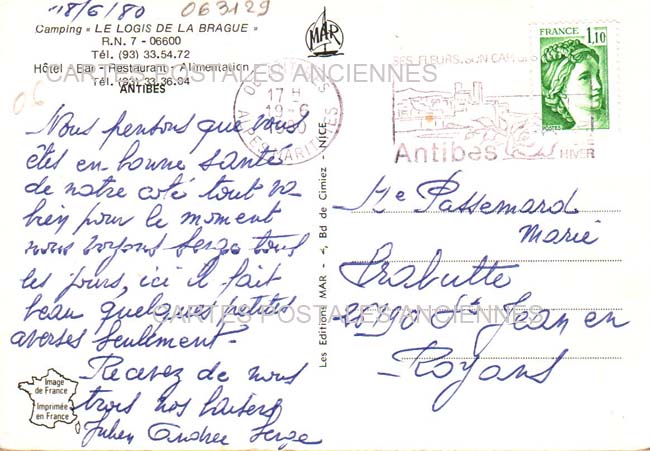 18/6/80 063129
Camping « LE LOGIS DE LA BRAGUE »
R.N. 7 - 06600
Tél. (93) 33.54.72
Hôtel - Bar - Restaurant - Alimentation
Tél. (93) 33.36.04
ANTIBES
06
CARTES POSTALES ANCIENNES
MAR
17 H
19-6
1980
ALPES-MARITIMES
SES FLEURS, SON CAP
Antibes
HIVER
FRANCE
1,10
POSTES
Nous pensons que vous
êtes en bonne santé
de notre coté tout va
bien pour le moment
nous voyons Serge tous
les jours, ici il fait
beau quelques petites
averses seulement.
Recevez de nous
trois nos baisers
Julien Andrée Serge
Image
de France
Imprimée
en France
Les Editions MAR - 4, Bd de Cimiez - NICE
Me Passemard
Marie
Prabutte
26190 St Jean en
Royans
CARTES POSTALES ANCIENNES